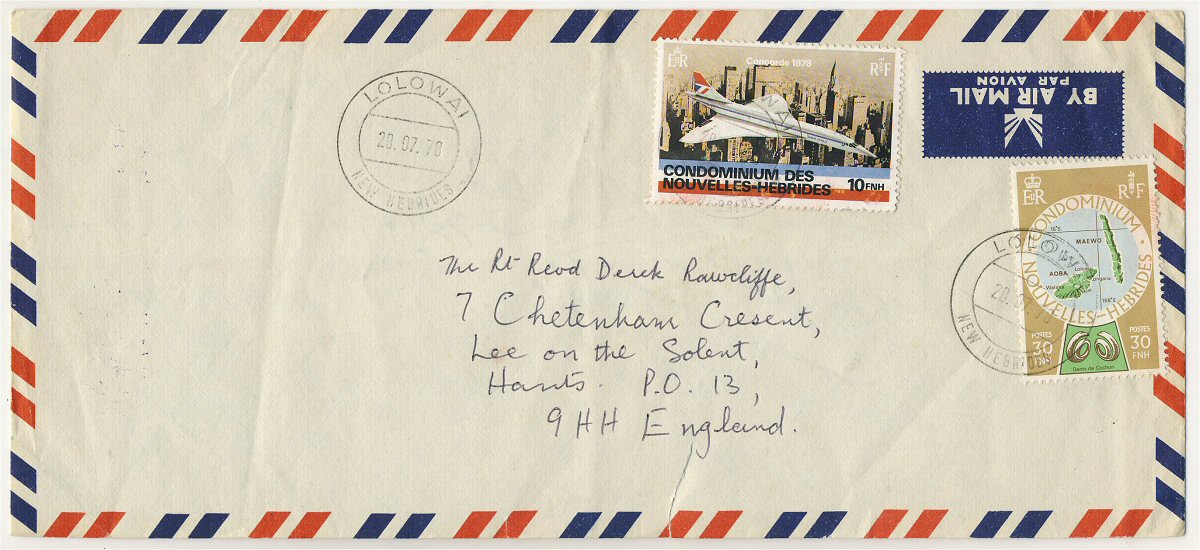 LOLOWAI
28.07.78
NEW HEBRIDES
EIIR
Concorde 1978
RF
CONDOMINIUM DES
NOUVELLES-HEBRIDES
10FNH
BY AIR MAIL
PAR AVION
EIIR
RF
CONDOMINIUM
NOUVELLES-HEBRIDES
15°S
MAEWO
AOBA
168°E
POSTES
30
FNH
POSTES
30
FNH
Dents de Cochon
LOLOW
28.07.78
NEW HEBRIDES
The Rt Revd Derek Rawcliffe,
7 Chetenham Cresent,
Lee on the Solent,
Hants. P.O. 13,
9HH England.